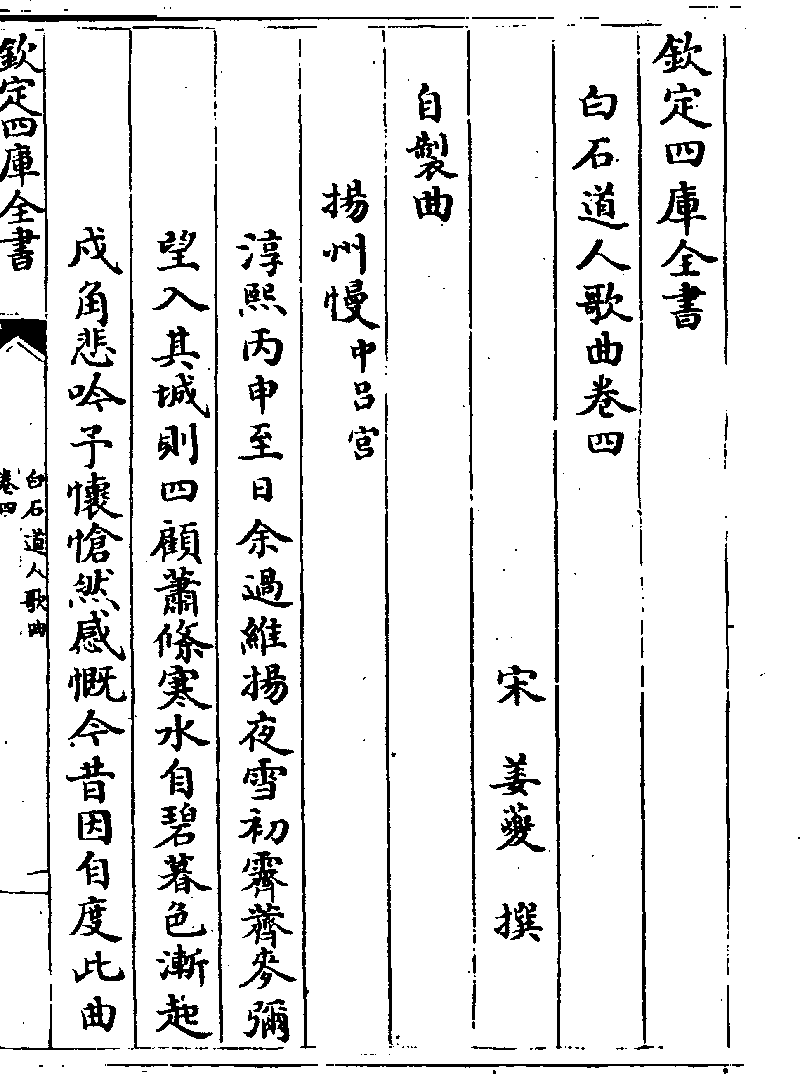 欽定四庫全書
白石道人歌曲卷四
宋 姜夔 撰
自製曲
揚州慢中呂宮
淳熙丙申至日余過維揚夜雪初霽薺麥彌
望入其城則四顧蕭條寒水自碧暮色漸起
戍角悲吟予懷愴然感慨今昔因自度此曲
欽定四庫全書
白石道人歌曲
卷四